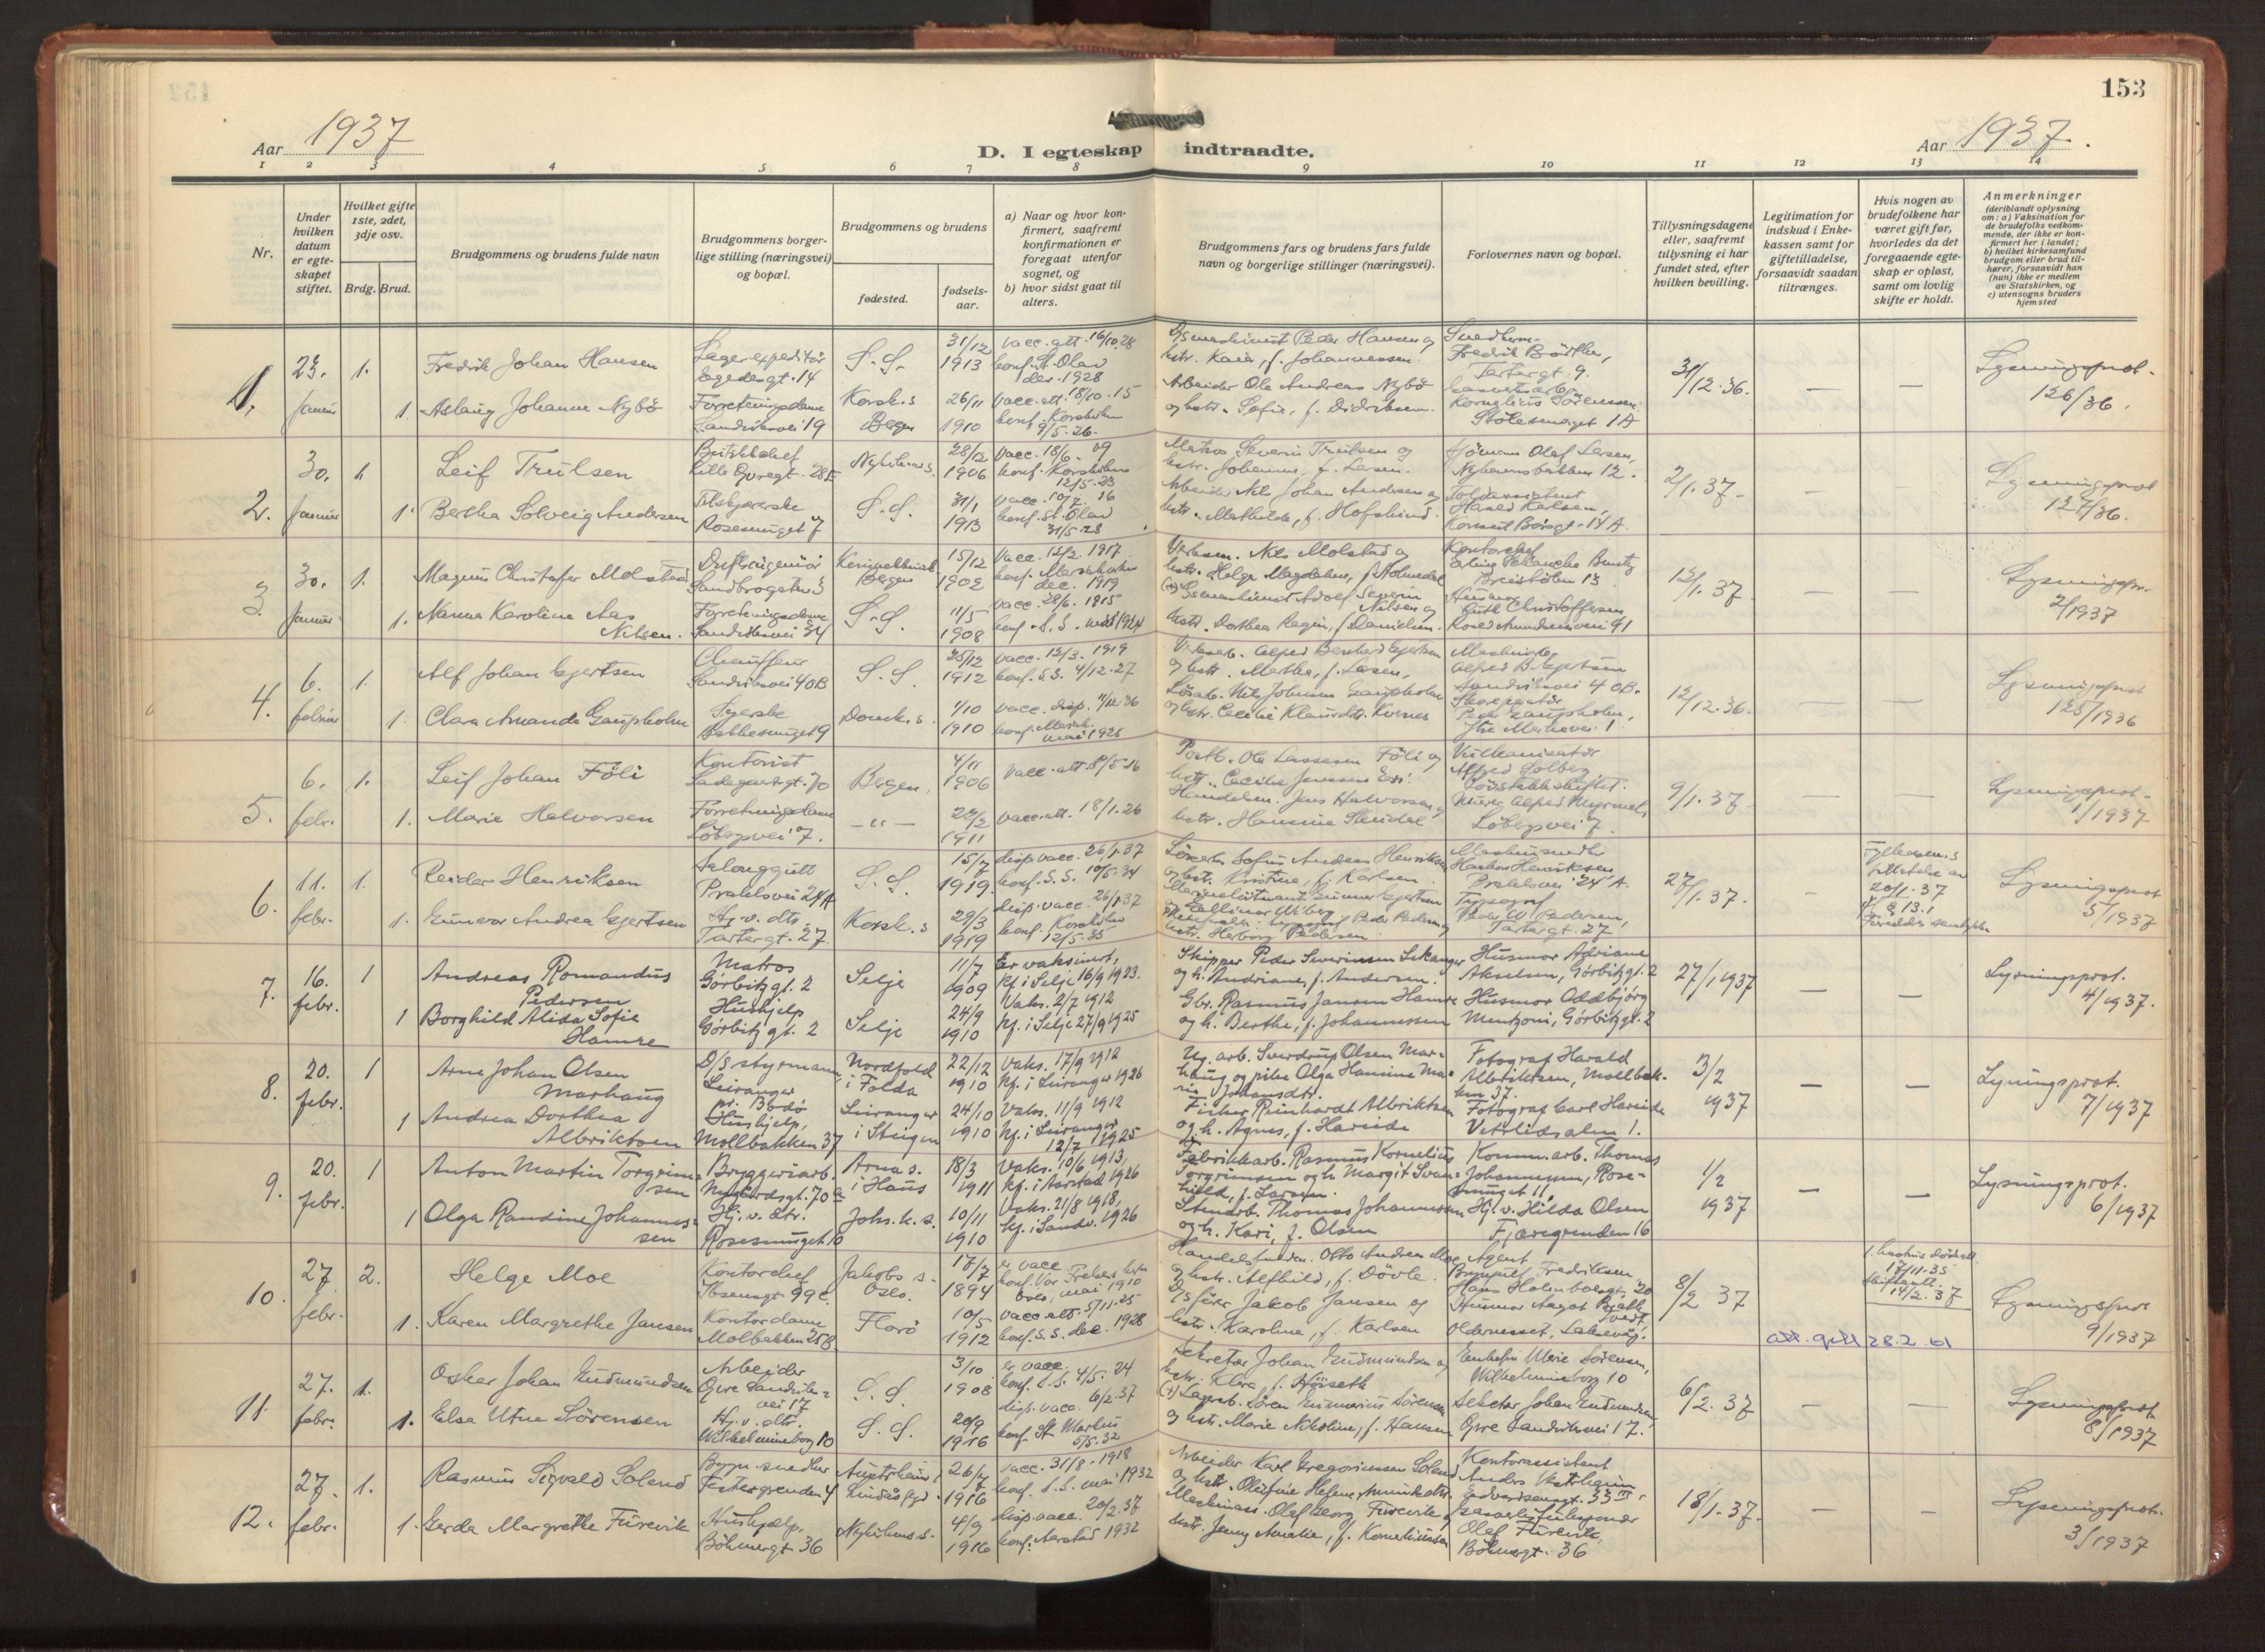 153
Aar 1937
D. I egteskap indtraadte.
Aar 1937.
1 2 3 4 5 6 7 8 9 10 11 12 13 14
Nr.
Under hvilken datum er egteskapet stiftet.
Hvilket gifte 1ste, 2det, 3dje osv.
Brdg. Brud.
Brudgommens og brudens fulde navn
Brudgommens borgerlige stilling (næringsvei) og bopæl.
Brudgommens og brudens
fødested.
fødselsaar.
a) Naar og hvor konfirmert, saafremt konfirmationen er foregaat utenfor sognet, og
b) hvor sidst gaat til alters.
Brudgommens fars og brudens fars fulde navn og borgerlige stillinger (næringsvei).
Forlovernes navn og bopæl.
Tillysningsdagene eller, saafremt tillysning ei har fundet sted, efter hvilken bevilling.
Legitimation for indskud i Enkekassen samt for giftetilladelse, forsaavidt saadan tiltrænges.
Hvis nogen av brudefolkene har været gift før, hvorledes da det foregaaende egteskap er opløst, samt om lovlig skifte er holdt.
Anmerkninger
(deriblandt oplysning om: a) Vaksination for de brudefolks vedkommende, der ikke er konfirmert her i landet;
b) hvilket kirkesamfund brudgom eller brud tilhører, forsaavidt han (hun) ikke er medlem av Statskirken, og
c) utensogns bruders hjemsted
1. 23. Januar 1.
Fredrik Johan Hansen
Lagerexpeditør
Egedesgt. 14
S. S.
31/12 1913
vacc. att. 16/10.28
konf. St. Olav
des. 1928
D/S maskinist Peder Hansen og
hstr. Kaia, f. Johannessen.
Fredrik Børther,
Tartargt. 9.
31/12.36. — —
Lysningsprot.
126/36.
1. Aslaug Johanne Nybø
Forretningsdame
Sandviksvei 19
Korsk. s
Bergen
26/11 1910
vacc. att. 18/10.15
konf. Korskirken
9/5.26.
Arbeider Ole Andreas Nybø
og hstr. Sofie, f. Didriksen.
Kornelius Sörenssen
Stölesmuget 1A
2. 30. Januar 1.
Leif Trulsen
Lille Øvregt. 28E
Nykirkens s.
28/12 1906
vacc. 18/6.09
konf. Korskirken
12/5.23
Matros Severin Trulsen og
hstr. Johanne, f. Larsen.
Sjömann Olaf Larsen,
Nyhavnsbakken 12.
2/1.37 — —
Lysningsprot
127/36.
1. Bertha Solveig Andersen
Rosesmuget 7
S. S.
31/1 1913
vacc. 10/7.16
konf. St. Olav
31/5.28
Arbeider Nils Johan Andersen og
hstr. Mathilde, f. Hofslund.
Toldassistent
Harald Karlsen,
3. 30. Januar 1.
Magnus Christofer Molstad
Driftsingeniør
Sandbrogaten 3
Bergen
15/12 1902
vacc. 12/2.1917
konf. Mariakirken
dec. 1919
Nils Molstad og
hstr. Helga Magdalene, f. Holmedal
Kontorchef
Breistølen 13
12/1.37 — —
Lysningspr.
2/1937
1. Nanna Karoline Aas
Nilsen.
Forretningsdame
Sandviksvei 34
S. S.
11/5 1908
vacc. 28/6.1915
konf. S. S. mai 1924
(+) D/S maskinist Adolf Severin
Nilsen og
hstr. Dorthea Regine, f. Danielsen.
Husmor
Ruth Christoffersen
Roald Amundsensvei 91
4. 6. februar 1.
Alf Johan Gjertsen
Chauffeur
Sandviksvei 40B
S. S.
25/12 1912
vacc. 12/3.1919
konf. S.S. 4/12.27
Alfred Bernhard Gjertsen
og hstr. Martha, f. Larsen,
Alfred B. Gjertsen
Sandviksvei 40B.
12/12.36. — —
Lysningsprot
125/1936
1. Clara Amanda Gaupholm
Syerske
Domk. s
1/10 1910
vacc. disp. 7/12.36
konf. Mariak.
mai 1925
Nils Johnsen Gaupholm
og hstr. Cecilie Klausdtr. Kvernes
Peder Gaupholm,
5. 6. febr. 1.
Leif Johan Föli
Kontorist
Ladegaardsgt. 70
Bergen
4/11 1906
vacc. att. 8/5.16
Postb. Ole Lassesen Föli og
hstr. Cecilie Jenssine
Vulkanisatør
Alfred Solberg
9/1.37 — —
Lysningsprot.
1/1937
1. Marie Halvorsen
Forretningsdame
Löbergsvei 7.
— " —
22/2 1911
vacc. att. 18/1.26
Handelsm. Jens Halvorsen og
hstr. Hansine Skeidal
Murer Alfred Myrmel,
Löbergsvei 7.
6. 11. febr. 1.
Reidar Henriksen
Salonggutt
Prahlsvei 24A
S. S.
15/7 1919
disp. vacc. 26/1.37
konf. S.S. 10/5.34
Sofus Andreas Henriksen
og hstr. Kristine, f. Karlsen.
Maskinsnedker
Haakon Henriksen
Prahlsvei 24 A.
27/1.37. —
Fylkesm.s
tillatelse av
20/1.37
Lysningsprot
5/1937
1. Gunvor Andrea Gjertsen
Hj. v. dtr.
Tartargt. 27
Korsk. s
29/3 1919
disp. vacc. 26/1.37
konf. Korskirken
12/5.35
Typograf
Peder W. Pedersen,
Tartargt. 27
hstr. Herborg Pedersen
7. 16. febr. 1
Andreas Romandus
Pedersen
Matros
Görbitzgt. 2
Selje
11/7 1909
Er vaksinert,
kf. i Selje 16/9 1923.
Skipper Peder Severinsen Sekanger
og h. Andriane, f. Andersen.
Husmor Adriane
Akselsen, Görbitzgt. 2
27/1 1937 — —
Lysningsprot.
4/1937.
1 Borghild Alida Sofie
Hamre
Hushjelp
Görbitzgt. 2
Selje
24/9 1910
Vaks. 2/7 1912
kf. i Selje 27/9 1925
Gbr. Rasmus Jansen Hamre
og h. Berthe, f. Johannessen
Husmor Oddbjörg
Mentzoni, Görbitzgt. 2
8. 20. febr. 1
Arne Johan Olsen
Marhaug
D/S styrmann,
Leiranger
pr. Bodø
Nordfold
i Folda
22/12 1910
Vaks. 17/9 1912
kf. i Leiranger 1926
Ug. arb. Sverdrup Olsen Marhaug
og pike Olga Hansine Maria Johansdtr.
Fotograf Harald
Albriktsen, Mollbakken 37.
3/2 1937 — —
Lysningsprot.
7/1937
1 Andrea Dorthea
Albriktsen
Hushjelp,
Mollbakken 37
Leiranger
i Steigen
24/10 1910
Vaks. 11/9 1912
kf. i Leiranger
12/7 1925
Fisker Reinhardt Albriktsen
og h. Agnes, f. Hareide
Fotograf Carl Hareide
Vetrlidsalm 1.
9. 20. febr. 1
Anton Martin Torgrimsen
Bryggeriarb.
Nygårdsgt. 70 a
Arna s.
i Haus
18/3 1911
Vaks. 10/6 1913,
kf. i Aarstad 1926
Fabrikkarb. Rasmus Kornelius
Torgrimsen og h. Margit Svanhild, f. Larsen.
Komm. arb. Thomas
Johannessen, Rosesmuget 11,
1/2 1937 — —
Lysningsprot.
6/1937
1 Olga Randine Johannessen
Hj. v. dtr.
Rosesmuget 10
Johs. k. s.
10/11 1910
Vaks. 21/8 1918,
kf. i Sandv. 1926
Stenarb. Thomas Johannessen
og h. Kari, f. Olsen
Hj. v. Hilda Olsen
Fjæregrenden 16
10. 27 febr. 2.
Helge Moe
Kontorchef
Ibsensgt 99 c.
Jakobs s.
Oslo.
17/7 1894
er vacc.
konf. Vor Frelsers kirke
Oslo, mai 1910
Otto Andreas Moe
og hstr. Alfhild, f. Dövle.
Agent
Brynjulf Fredriksen
8/2 37
17/11.35
Skifteatt.
14/2.37
Lysningsprot
9/1937
1. Karen Margrethe Jansen
Kontordame
Molbakken 25B
Florö
10/5 1912
vacc att. 5/11.25
konf. S.S. dec. 1928
D/S fører Jakob Jansen og
hstr. Karoline, f. Karlsen
Husmor Aagot
Oldernesset, Laksevåg.
att. gitt 28.2.61
11. 27. febr. 1.
Oskar Johan Gudmundsen
Arbeider
Øvre Sandviksvei 17
S. S.
3/10 1908
er vacc.
konf. S.S. 4/5.24
Sekretær Johan Gudmundsen og
hstr. Klara, f. Höiseth
Enkefru Marie Sörensen,
Wilhelmineborg 10
6/2.37 — —
Lysningsprot
8/1937
1. Elsa Utne Sörensen
Hj. v. dtr.
Wilhelmineborg 10
S. S.
20/9 1916
disp. vacc. 6/2.37
konf. St Markus
5/5.32
(+) Lagerarb. Sören Gunnerius Sörensen
og hstr. Marie Nikoline, f. Hansen
Sekretær Johan Gudmundsen
Øvre Sandviksvei 17.
12. 27. febr. 1.
Rasmus Sigvald Solend
Bygn. snedker
Festergrenden 4
Austrheim s
Lindås pgd.
26/7 1916
vacc. 31/8.1918
konf. S.S. mai 1932
Arbeider Karl Gregoriussen Solend
Kontorassistent
Anders Vestrheim
Edvardsensgt. 33 III.
18/1.37. — —
Lysningsprot.
3/1937
1. Gerda Margrethe Furevik
Hushjælp,
Böhmergt. 36
Nykirkens s.
4/9 1916
disp. vacc. 20/2.37
konf. Aarstad 1932
Maskinass. Olaf Georg Furevik og
hstr. Jenny Amalie, f. Korneliussen
Olaf Furevik,
Böhmergt. 36